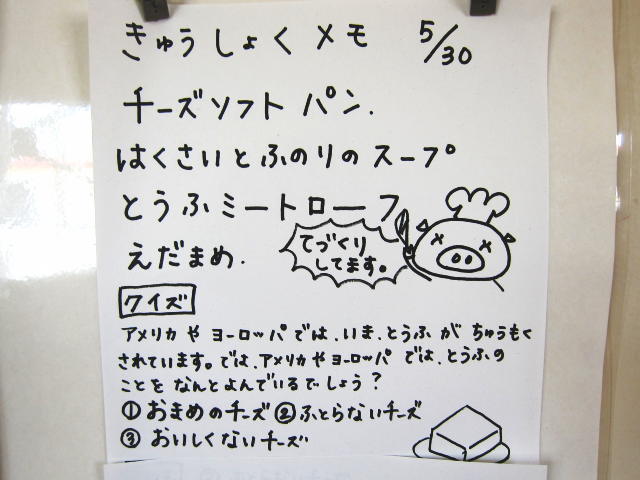 きゅうしょくメモ 5/30
チーズソフトパン.
はくさいとふのりのスープ
とうふミートローフ
てづくり
してます。
えだまめ.
クイズ
アメリカや ヨーロッパでは、いま、とうふが ちゅうもく
されています。では、アメリカやヨーロッパ では、とうふの
ことを なんとよんでいるでしょう？
①おまめのチーズ ②ふとらないチーズ
③おいしくないチーズ